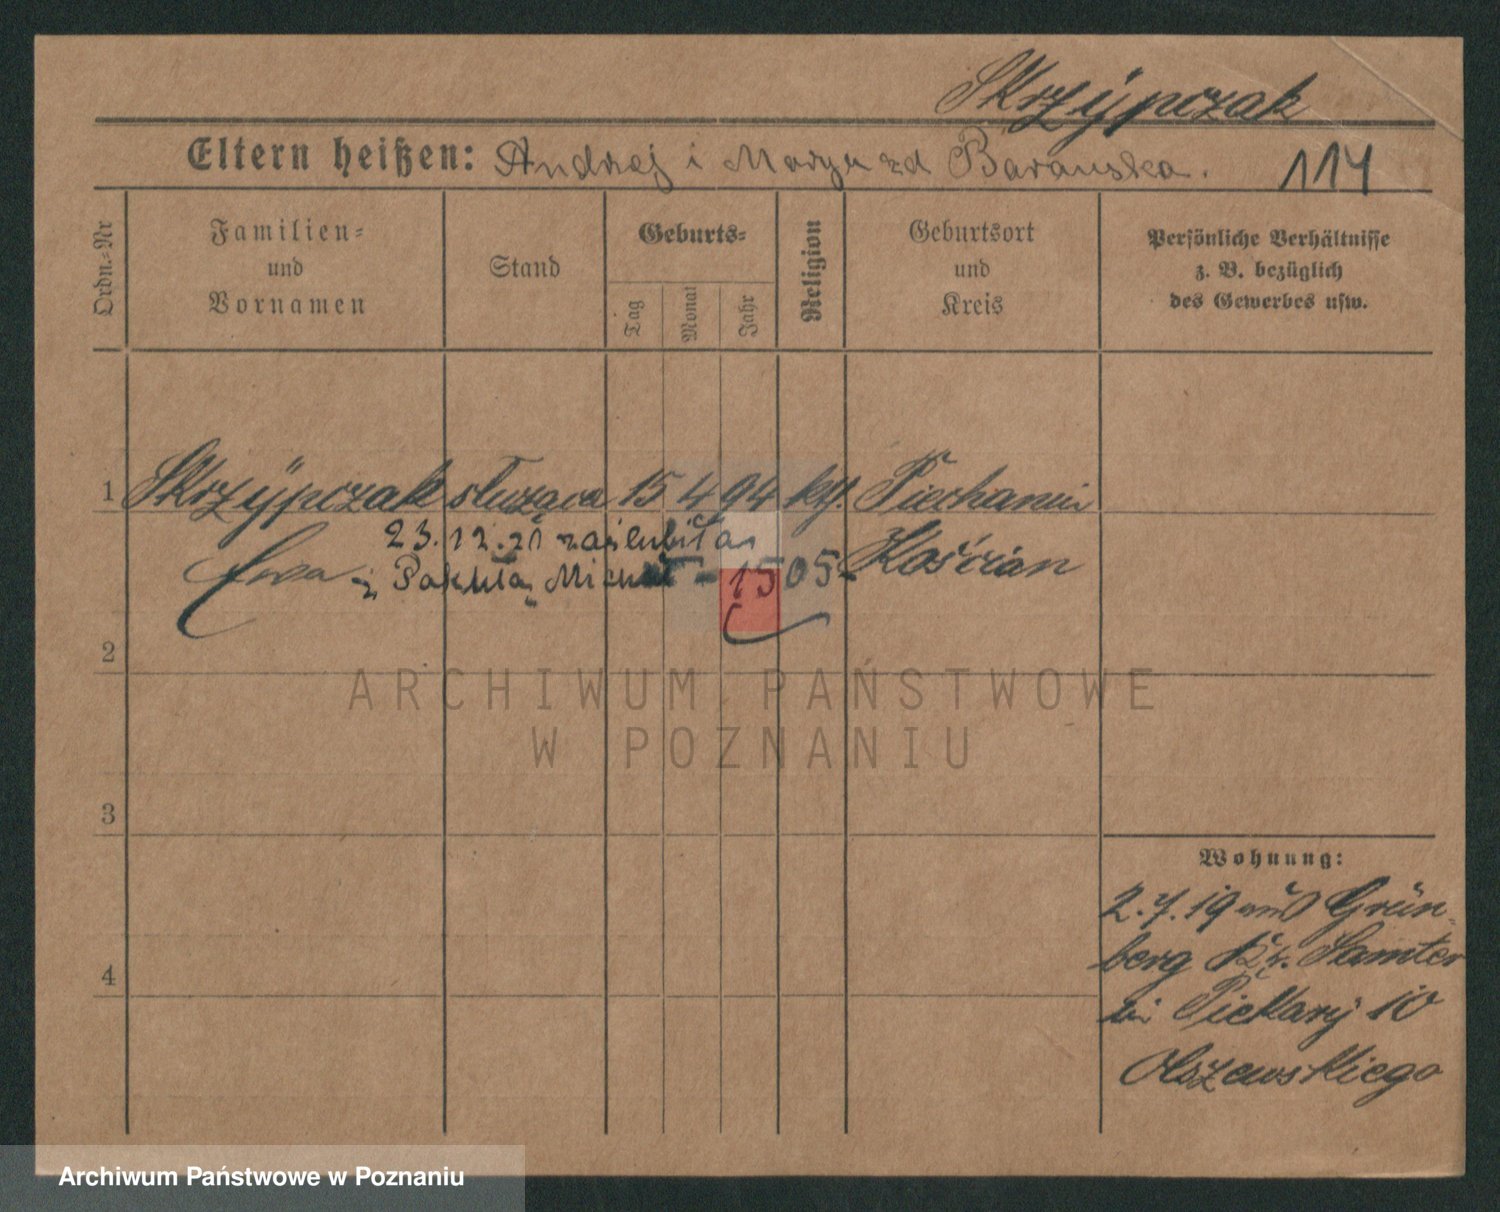 Skrzypczak
Eltern heißen: Andrzej i Marya zd Barańska.
114
Ordn.-Nr
Familien-
und
Vornamen
Stand
Geburts-
Tag
Monat
Jahr
Religion
Geburtsort
und
Kreis
Persönliche Verhältnisse
z. B. bezüglich
des Gewerbes usw.
1 Skrzypczak służąca 15 4 94 kg. Piechanin
23.12.21 zaślubiła
Ewa z Pakułą Michał - 1505 - Kościan
2
ARCHIWUM PAŃSTWOWE
W POZNANIU
3
Wohnung:
2.7.19 aus Grün-
berg Kr. Samter
Piekary 10
Olszewskiego
4
Archiwum Państwowe w Poznaniu